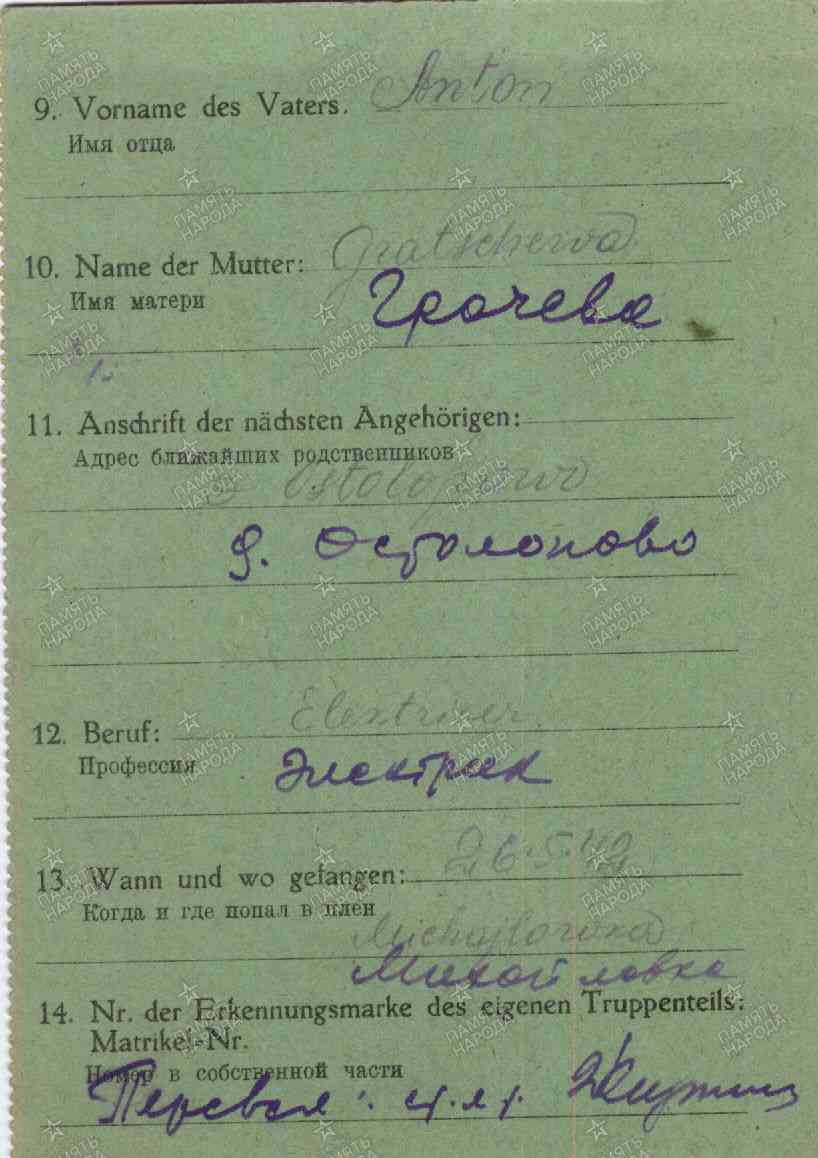 9. Vorname des Vaters. Anton
Имя отца
10. Name der Mutter: Gratschewa
Имя матери
Грачева
11. Anschrift der nächsten Angehörigen:
Адрес ближайших родственников
Ostolopowo
д. Остолопово
12. Beruf: Elektriker
Профессия
Электрик
13. Wann und wo gefangen: 26.5.42
Когда и где попал в плен
Michajlowka
Михайловка
14. Nr. der Erkennungsmarke des eigenen Truppenteils:
Matrikel-Nr.
Номер в собственной части
Перевел:
ПАМЯТЬ НАРОДА